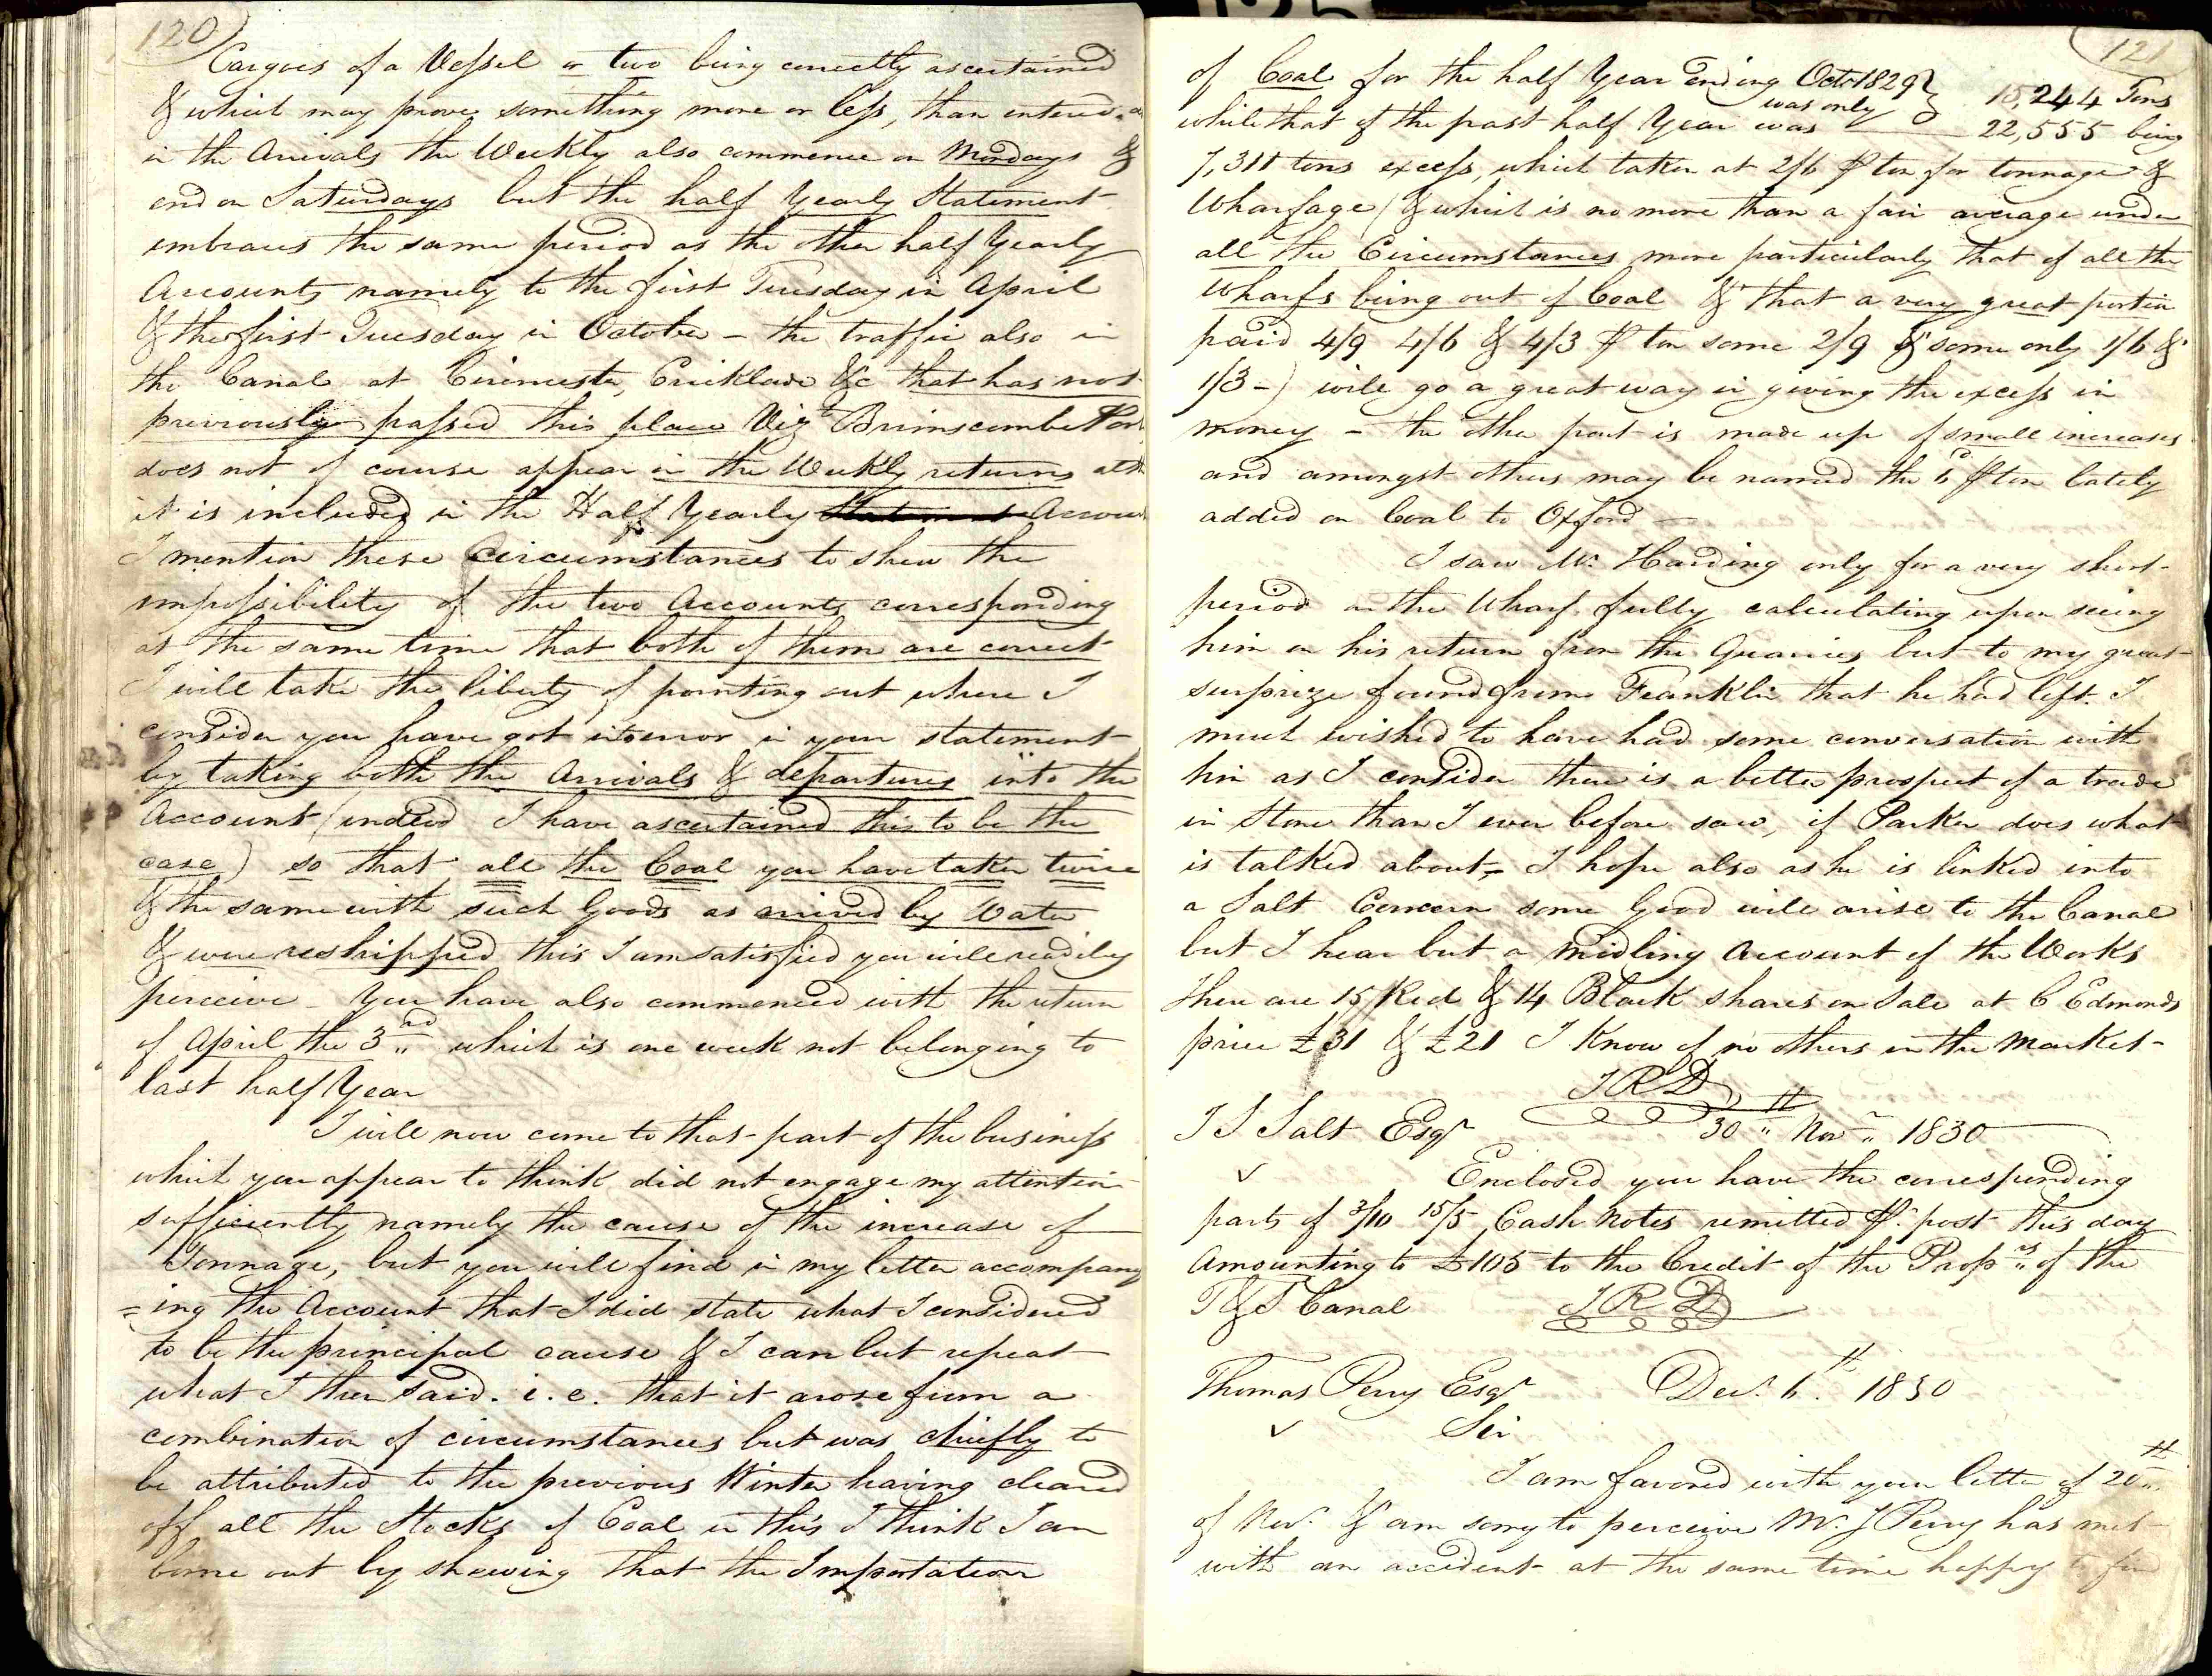 120
Cargoes of a Vessel or two being correctly ascertained
& which may prove something more or less, than entered
in the Arrivals the Weekly also commence on Mondays &
end on Saturdays but the half Yearly Statement
embraces the same period as the other half Yearly
Accounts namely to the first Tuesday in April
& the first Tuesday in October - the traffic also in
the Canal at Cirencester, Cricklade &c that has not
previously passed this place Vizt Brimscombe Port
does not of course appear in the Weekly returns altho
it is included in the Half Yearly Statement Account
I mention these Circumstances to shew the
impossibility of the two Accounts corresponding
at the same time that both of them are correct
I will take the liberty of pointing out where I
consider you have got into error in your statement
by taking both the Arrivals & departures into the
Account (indeed I have ascertained this to be the
case) so that all the Coal you have taken twice
& the same with such Goods as arrived by Water
& were reshipped this I am satisfied you will readily
perceive - You have also commenced with the return
of April the 3rd which is one week not belonging to
last half Year
I will now come to that part of the business
which you appear to think did not engage my attention
sufficiently namely the cause of the increase of
Tonnage, but you will find in my letter accompany
=ing the Account that I did state what I considered
to be the principal cause & I can but repeat
what I then said. i.e. that it arose from a
combination of circumstances but was chiefly to
be attributed to the previous Winter having cleared
off all the Stocks of Coal in this I think I am
borne out by shewing that the Importation
121
of Coal for the half Year ending Octr 1829 } 15,244 Tons
was only
while that of the past half Year was 22,555 being
7,311 tons excess, which taken at 2/6 ⅌ ton for tonnage &
Wharfage (& which is no more than a fair average under
all the Circumstances more particularly that of all the
Wharfs being out of Coal & that a very great portion
paid 4/9 4/6 & 4/3 ⅌ ton some 2/9 & some only 1/6 &
1/3 -) will go a great way in giving the excess in
money - the other part is made up of small increases
and amongst others may be named the 6d ⅌ ton lately
added on Coal to Oxford -
I saw Mr. Harding only for a very short
period on the Wharf fully calculating upon seeing
him on his return from the Quarries but to my great
surprize found from Franklin that he had left. I
much wished to have had some conversation with
him as I consider there is a better prospect of a trade
in Stone than I ever before saw, if Parker does what
is talked about, - I hope also as he is linked into
a Salt Concern some Good will arise to the Canal
but I hear but a midling Account of the Works
There are 15 Red & 14 Black shares on Sale at C Edmonds
price £31 & £21 I Know of no others in the Market -
J R D
J S Salt Esqr 30th Novr 1830
✓ Enclosed you have the corresponding
parts of 3/10 15/5 Cash Notes remitted ⅌ post this day
Amounting to £105 to the Credit of the Proprs of the
T & S Canal J R D
Thomas Perry Esqr Decr. 6th 1830
✓ Sir
I am favored with your letter of 20th
of Novr. & am sorry to perceive Mr. J Perry has met
with an accident at the same time happy to find